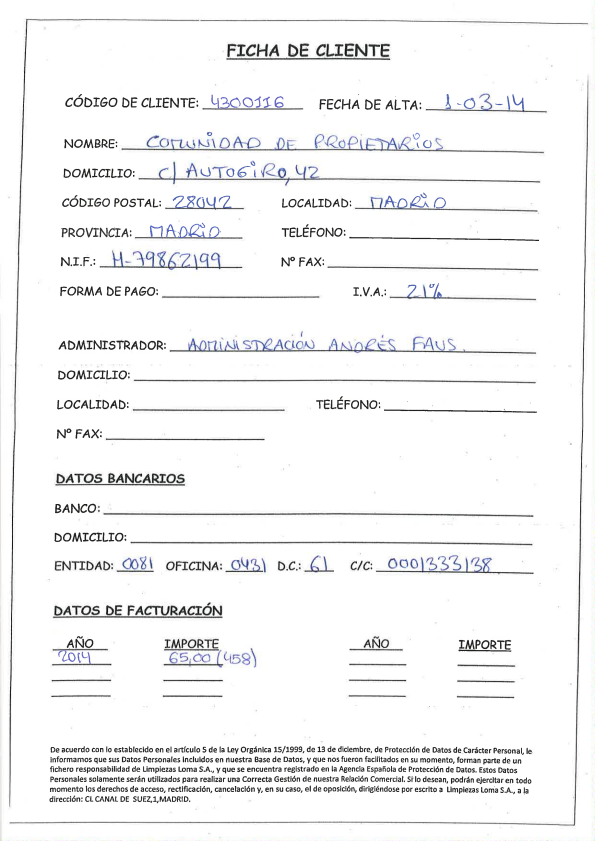 FICHA DE CLIENTE
CÓDIGO DE CLIENTE: 4300116 FECHA DE ALTA: 1-03-14
NOMBRE: COMUNIDAD DE PROPIETARIOS
DOMICILIO: C/ AUTOGIRO, 42
CÓDIGO POSTAL: 28042 LOCALIDAD: MADRID
PROVINCIA: MADRID TELÉFONO:
N.I.F.: H-79862199 Nº FAX:
FORMA DE PAGO: I.V.A.: 21%
ADMINISTRADOR: ADMINISTRACIÓN ANDRÉS FAUS.
DOMICILIO:
LOCALIDAD: TELÉFONO:
Nº FAX:
DATOS BANCARIOS
BANCO:
DOMICILIO:
ENTIDAD: 0081 OFICINA: 0431 D.C.: 61 C/C: 0001333138
DATOS DE FACTURACIÓN
AÑO IMPORTE AÑO IMPORTE
2014 65,00 (458)
De acuerdo con lo establecido en el artículo 5 de la Ley Orgánica 15/1999, de 13 de diciembre, de Protección de Datos de Carácter Personal, le
informamos que sus Datos Personales incluidos en nuestra Base de Datos, y que nos fueron facilitados en su momento, forman parte de un
fichero responsabilidad de Limpiezas Loma S.A., y que se encuentra registrado en la Agencia Española de Protección de Datos. Estos Datos
Personales solamente serán utilizados para realizar una Correcta Gestión de nuestra Relación Comercial. Si lo desean, podrán ejercitar en todo
momento los derechos de acceso, rectificación, cancelación y, en su caso, el de oposición, dirigiéndose por escrito a Limpiezas Loma S.A., a la
dirección: CL CANAL DE SUEZ,1,MADRID.